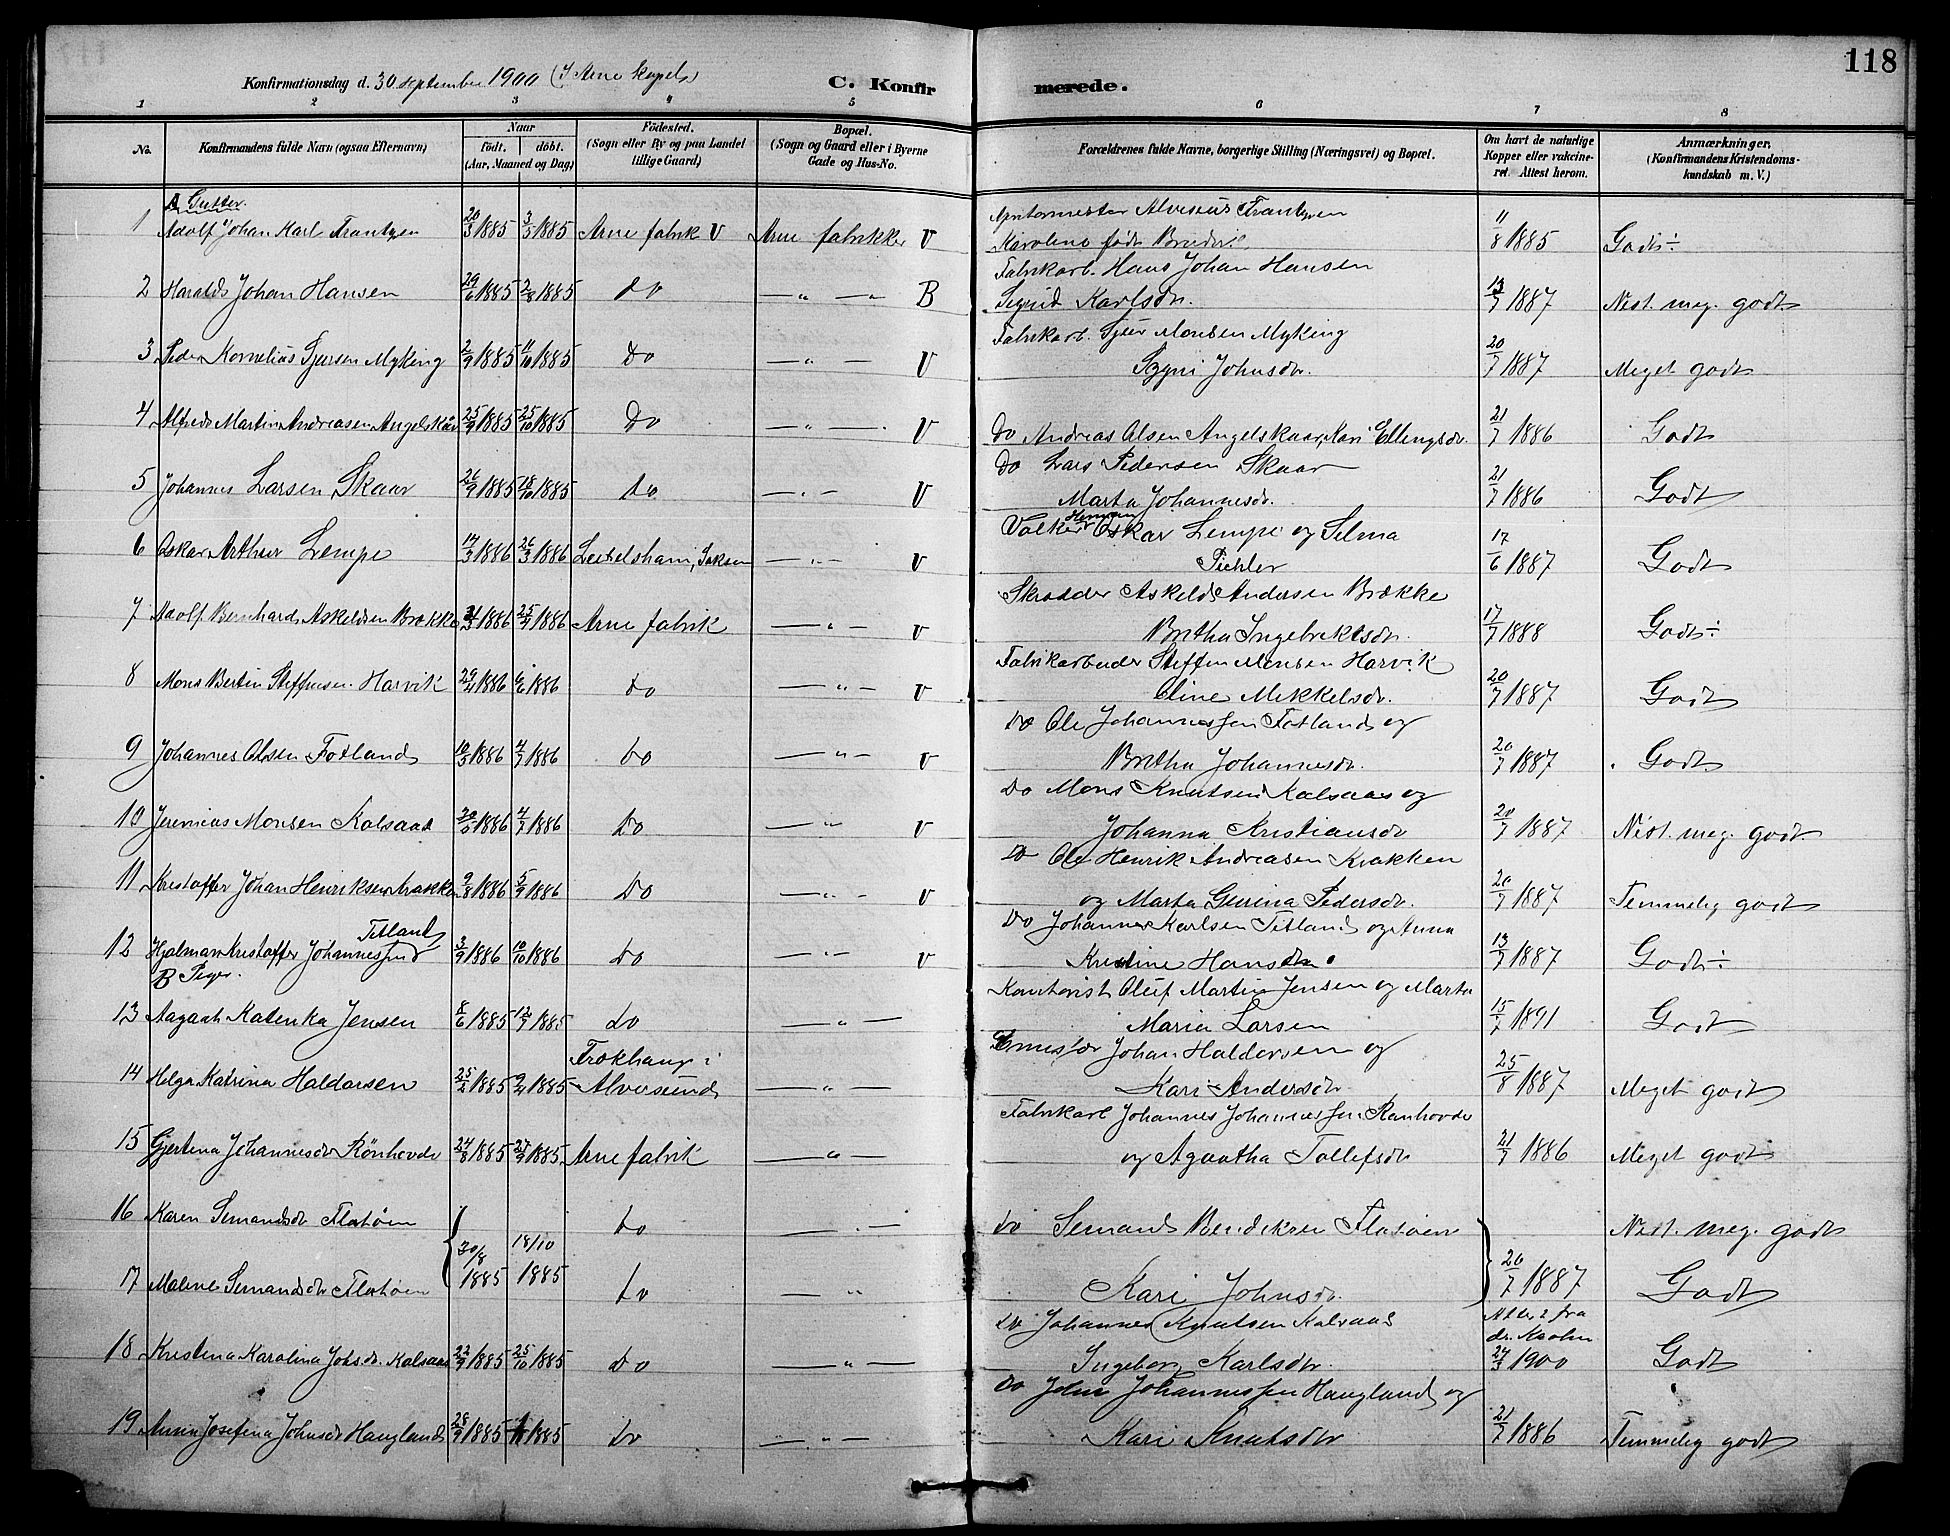 118
Konfirmationsdag d. 30 september 1900 (I Arne kapel)
C. Konfirmerede.
1 2 3 4 5 6 7 8
No. Konfirmandens fulde Navn (ogsaa Efternavn) Naar født. døbt. (Aar, Maaned og Dag) Fødested. (Sogn eller By og paa Landet tillige Gaard) Bopæl. (Sogn og Gaard eller i Byerne Gade og Hus-No. Forældrenes fulde Navne, borgerlige Stilling (Næringsvei) og Bopæl. Om havt de naturlige Kopper eller vakcineret. Attest herom. Anmærkninger. (Konfirmandens Kristendomskundskab m. V.)
A Gutter.
1 Adolf Johan Karl Frantzen 20/3 1885 3/5 1885 Arne fabrik V Arne fabrikker V Alvisius Frantzen
Karoline født 11/8 1885 Godt ÷
2 Harald Johan Hansen 29/6 1885 2/8 1885 do — „ — B Fabrikarb. Hans Johan Hansen
Sigrid Karlsdr. 13/7 1887 Nest. meg. godt
3 Peder Kornelius Gjersen Myking 2/9 1885 11/10 1885 Do — „ — V Fabrikarb. Gjær Monsen Myking
Johnsdr. 20/7 1887 Meget godt
4 Alfred Martin Andreasen Angelskår 25/9 1885 25/10 1885 Do — „ — V Do Andreas Olsen Angelskaar, Kari Ellingsdr. 21/7 1886 Godt
5 Johannes Larsen Skaar 26/9 1885 18/10 1885 do — „ — V Do Lars Pedersen Skaar
Marta Johannesdr. 21/7 1886 Godt
6 Oskar Arthur Lempe 14/3 1886 26/3 1886 Saksen — „ — V Valker Herman Oskar Lempe og Selma
Pichler 17/6 1887 Godt
7 Adolf Bernhard Askeldsen Brække 31/3 1886 25/4 1886 Arne fabrik — „ — V Skrædder Askeld Andersen Brække
Britha Ingebriktsdr. 17/7 1888 Godt ÷
8 Mons Bertin Steffensen Harvik 29/4 1886 6/6 1886 Do — „ — V Fabrikarbeider Steffen Monsen Harvik
Oline Mikkelsdr. 20/7 1887 Godt
9 Johannes Olsen Fotland 10/5 1886 4/7 1886 Do — „ — V Do Ole Johannessen Fotland og
Britha Johannesdr. 20/7 1887 Godt
10 Jeremias Monsen Kalsaas 20/5 1886 4/7 1886 Do — „ V Do Mons Knutsen Kalsaas og
Johanna Kristiansdr 20/7 1887 Nest. meg. godt
11 Kristoffer Johan Henriksen Krakken 9/8 1886 5/9 1886 Do — „ — V Do Ole Henrik Andreasen Krakken
og Marta Gurina Pedersdr. 20/7 1887 Temmelig godt
12 Hjalmar Kristoffer Johannessen Titland 3/9 1886 10/10 1886 Do — „ — V Do Johannes Karlsen Titland og Anna
Kristine Hansdr. 13/7 1887 Godt ÷
B Piger.
13 Aagaat Katinka Jensen 8/6 1885 12/7 1885 do — „ — Kontorist Oluf Martin Jensen og Marta
Maria Larsen 15/7 1891 Godt
14 Helga Katrina Haldorsen 25/2 1885 1885 i Alversund — „ — Johan Haldorsen og
Kari Andersdr. 25/8 1887 Meget godt
15 Gjertina Johannesdr Rønhovde 24/8 1885 27/9 1885 Arne fabrik — „ — Fabrikarb Johannes Johannessen Rønhovde
og Agaatha Tollefsdr 21/7 1886 Meget godt
16 Karen Semandsdr Flatøen do — „ — do Semand Bendiksen Flatøen Nest. meg. godt
17 Malene Semandsdr Flatøen 30/8 1885 18/10 1885 do — „ Kari Johnsdr. 20/7 1887 Godt
18 Kristina Karolina Johsdr. Kalsaas 22/9 1885 25/10 1885 Do — „ — Do Johannes Knutsen Kalsaas
Ingeborg Karlsdr. fra dr. Krohn 27/3 1900 Godt
19 Anna Josefina Johnsdr Haugland 28/9 1885 1885 Do — „ — Do John Johannessen Haugland og
Kari Knutsdr 21/7 1886 Temmelig godt